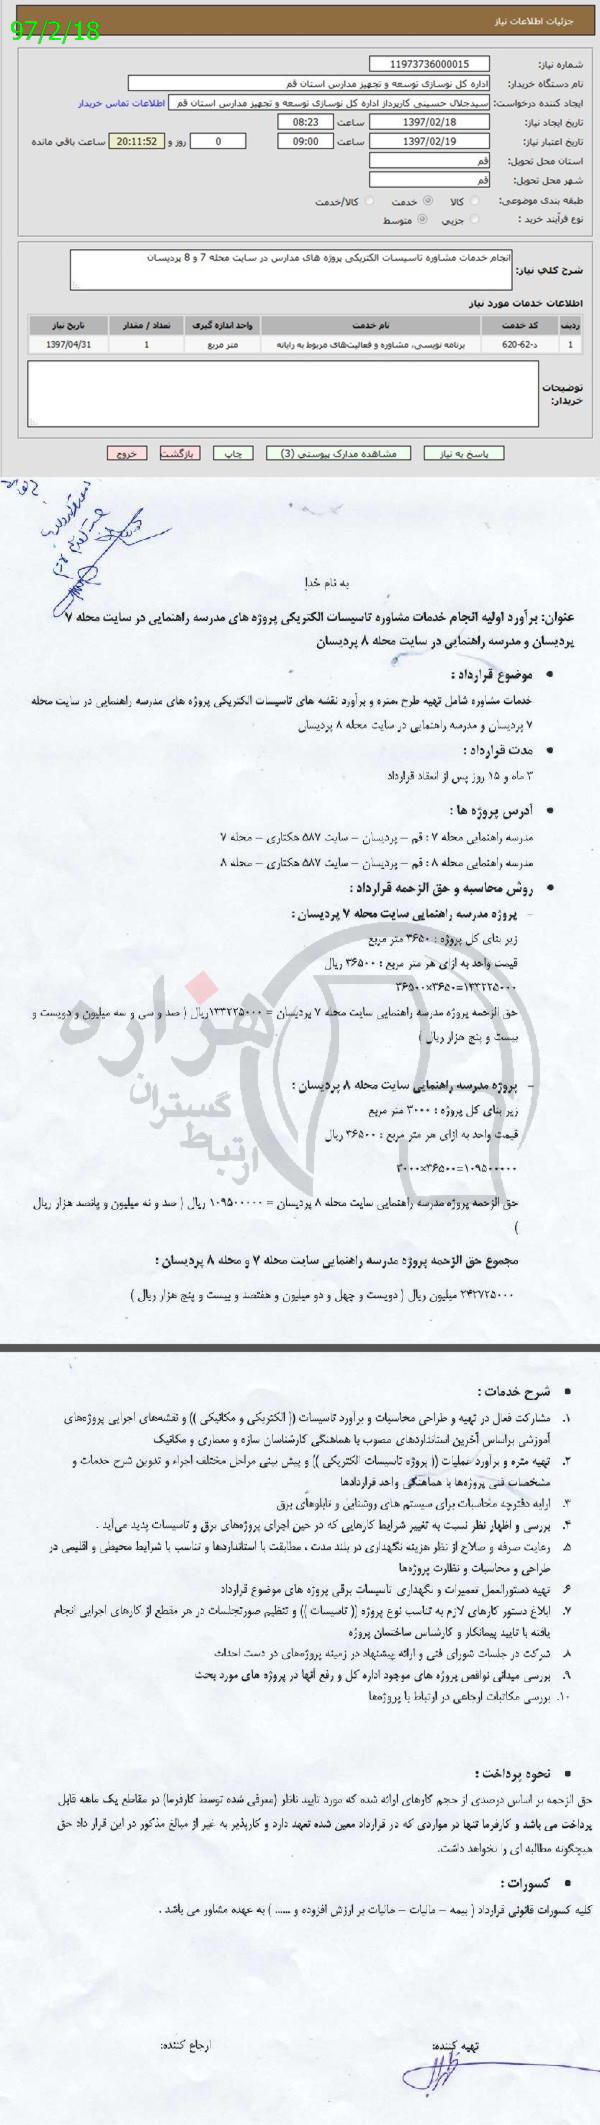 97/2/18
جزئیات اطلاعات نیاز
شماره نیاز: 11973736000015
نام دستگاه خریدار: اداره کل نوسازی توسعه و تجهیز مدارس استان قم
ایجاد کننده درخواست: سیدجلال حسینی کارپرداز اداره کل نوسازی توسعه و تجهیز مدارس استان قم اطلاعات تماس خریدار
تاریخ ایجاد نیاز: 1397/02/18 ساعت 08:23
تاریخ اعتبار نیاز: 1397/02/19 ساعت 09:00 0 روز و 20:11:52 ساعت باقی مانده
استان محل تحویل: قم
شهر محل تحویل: قم
طبقه بندی موضوعی: کالا خدمت کالا/خدمت
نوع فرآیند خرید : جزیی متوسط
شرح کلی نیاز: انجام خدمات مشاوره تاسیسات الکتریکی پروژه های مدارس در سایت محله 7 و 8 پردیسان
اطلاعات خدمات مورد نیاز
ردیف کد خدمت نام خدمت واحد اندازه گیری تعداد / مقدار تاریخ نیاز
1 د-62-620 برنامه نویسی، مشاوره و فعالیت‌های مربوط به رایانه متر مربع 1 1397/04/31
توضیحات خریدار:
پاسخ به نیاز مشاهده مدارک پیوستی (3) چاپ بازگشت خروج
به نام خدا
عنوان: برآورد اولیه انجام خدمات مشاوره تاسیسات الکتریکی پروژه های مدرسه راهنمایی در سایت محله ۷
پردیسان و مدرسه راهنمایی در سایت محله ۸ پردیسان
• موضوع قرارداد :
خدمات مشاوره شامل تهیه طرح ،متره و برآورد نقشه های تاسیسات الکتریکی پروژه های مدرسه راهنمایی در سایت محله
۷ پردیسان و مدرسه راهنمایی در سایت محله ۸ پردیسان
• مدت قرارداد :
۳ ماه و ۱۵ روز پس از انعقاد قرارداد
• آدرس پروژه ها :
مدرسه راهنمایی محله ۷ : قم – پردیسان – سایت ۵۸۷ هکتاری – محله ۷
مدرسه راهنمایی محله ۸ : قم – پردیسان – سایت ۵۸۷ هکتاری – محله ۸
• روش محاسبه و حق الزحمه قرارداد :
– پروژه مدرسه راهنمایی سایت محله ۷ پردیسان :
زیر بنای کل پروژه : ۳۶۵۰ متر مربع
قیمت واحد به ازای هر متر مربع : ۳۶۵۰۰ ریال
۳۶۵۰۰×۳۶۵۰=۱۳۳۲۲۵۰۰۰
حق الزحمه پروژه مدرسه راهنمایی سایت محله ۷ پردیسان = ۱۳۳۲۲۵۰۰۰ریال ( صد و سی و سه میلیون و دویست و
بیست و پنج هزار ریال )
هزاره
گستران
ارتباط
– پروژه مدرسه راهنمایی سایت محله ۸ پردیسان :
زیر بنای کل پروژه : ۳۰۰۰ متر مربع
قیمت واحد به ازای هر متر مربع : ۳۶۵۰۰ ریال
۳۰۰۰×۳۶۵۰۰=۱۰۹۵۰۰۰۰۰
حق الزحمه پروژه مدرسه راهنمایی سایت محله ۸ پردیسان = ۱۰۹۵۰۰۰۰۰ ریال ( صد و نه میلیون و پانصد هزار ریال
)
مجموع حق الزحمه پروژه مدرسه راهنمایی سایت محله ۷ و محله ۸ پردیسان :
۲۴۲۷۲۵۰۰۰ میلیون ریال ( دویست و چهل و دو میلیون و هفتصد و بیست و پنج هزار ریال )
• شرح خدمات :
۱. مشارکت فعال در تهیه و طراحی محاسبات و برآورد تاسیسات (( الکتریکی و مکانیکی )) و نقشه‌های اجرایی پروژه‌های
آموزشی براساس آخرین استانداردهای مصوب با هماهنگی کارشناسان سازه و معماری و مکانیک
۲. تهیه متره و برآورد عملیات (( پروژه تاسیسات الکتریکی )) و پیش بینی مراحل مختلف اجراء و تدوین شرح خدمات و
مشخصات فنی پروژه‌ها با هماهنگی واحد قراردادها
۳. ارایه دفترچه محاسبات برای سیستم های روشنایی و تابلوهای برق
۴. بررسی و اظهار نظر نسبت به تغییر شرایط کارهایی که در حین اجرای پروژه‌های برق و تاسیسات پدید می‌آید .
۵. رعایت صرفه و صلاح از نظر هزینه نگهداری در بلند مدت ، مطابقت با استانداردها و تناسب با شرایط محیطی و اقلیمی در
طراحی و محاسبات و نظارت پروژه‌ها
۶. تهیه دستورالعمل تعمیرات و نگهداری تاسیسات برقی پروژه های موضوع قرارداد
۷. ابلاغ دستور کارهای لازم به تناسب نوع پروژه (( تاسیسات )) و تنظیم صورتجلسات در هر مقطع از کارهای اجرایی انجام
یافته با تایید پیمانکار و کارشناس ساختمان پروژه
۸. شرکت در جلسات شورای فنی و ارائه پیشنهاد در زمینه پروژه‌های در دست احداث
۹. بررسی میدانی نواقص پروژه های موجود اداره کل و رفع آنها در پروژه های مورد بحث
۱۰. بررسی مکاتبات ارجاعی در ارتباط با پروژه‌ها
• نحوه پرداخت :
حق الزحمه بر اساس درصدی از حجم کارهای ارائه شده که مورد تایید ناظر (معرفی شده توسط کارفرما) در مقاطع یک ماهه قابل
پرداخت می باشد و کارفرما تنها در مواردی که در قرارداد معین شده تعهد دارد و کارپذیر به غیر از مبالغ مذکور در این قرار داد حق
هیچگونه مطالبه ای را نخواهد داشت.
• کسورات :
کلیه کسورات قانونی قرارداد ( بیمه – مالیات – مالیات بر ارزش افزوده و ...... ) به عهده مشاور می باشد .
تهیه کننده: ارجاع کننده: